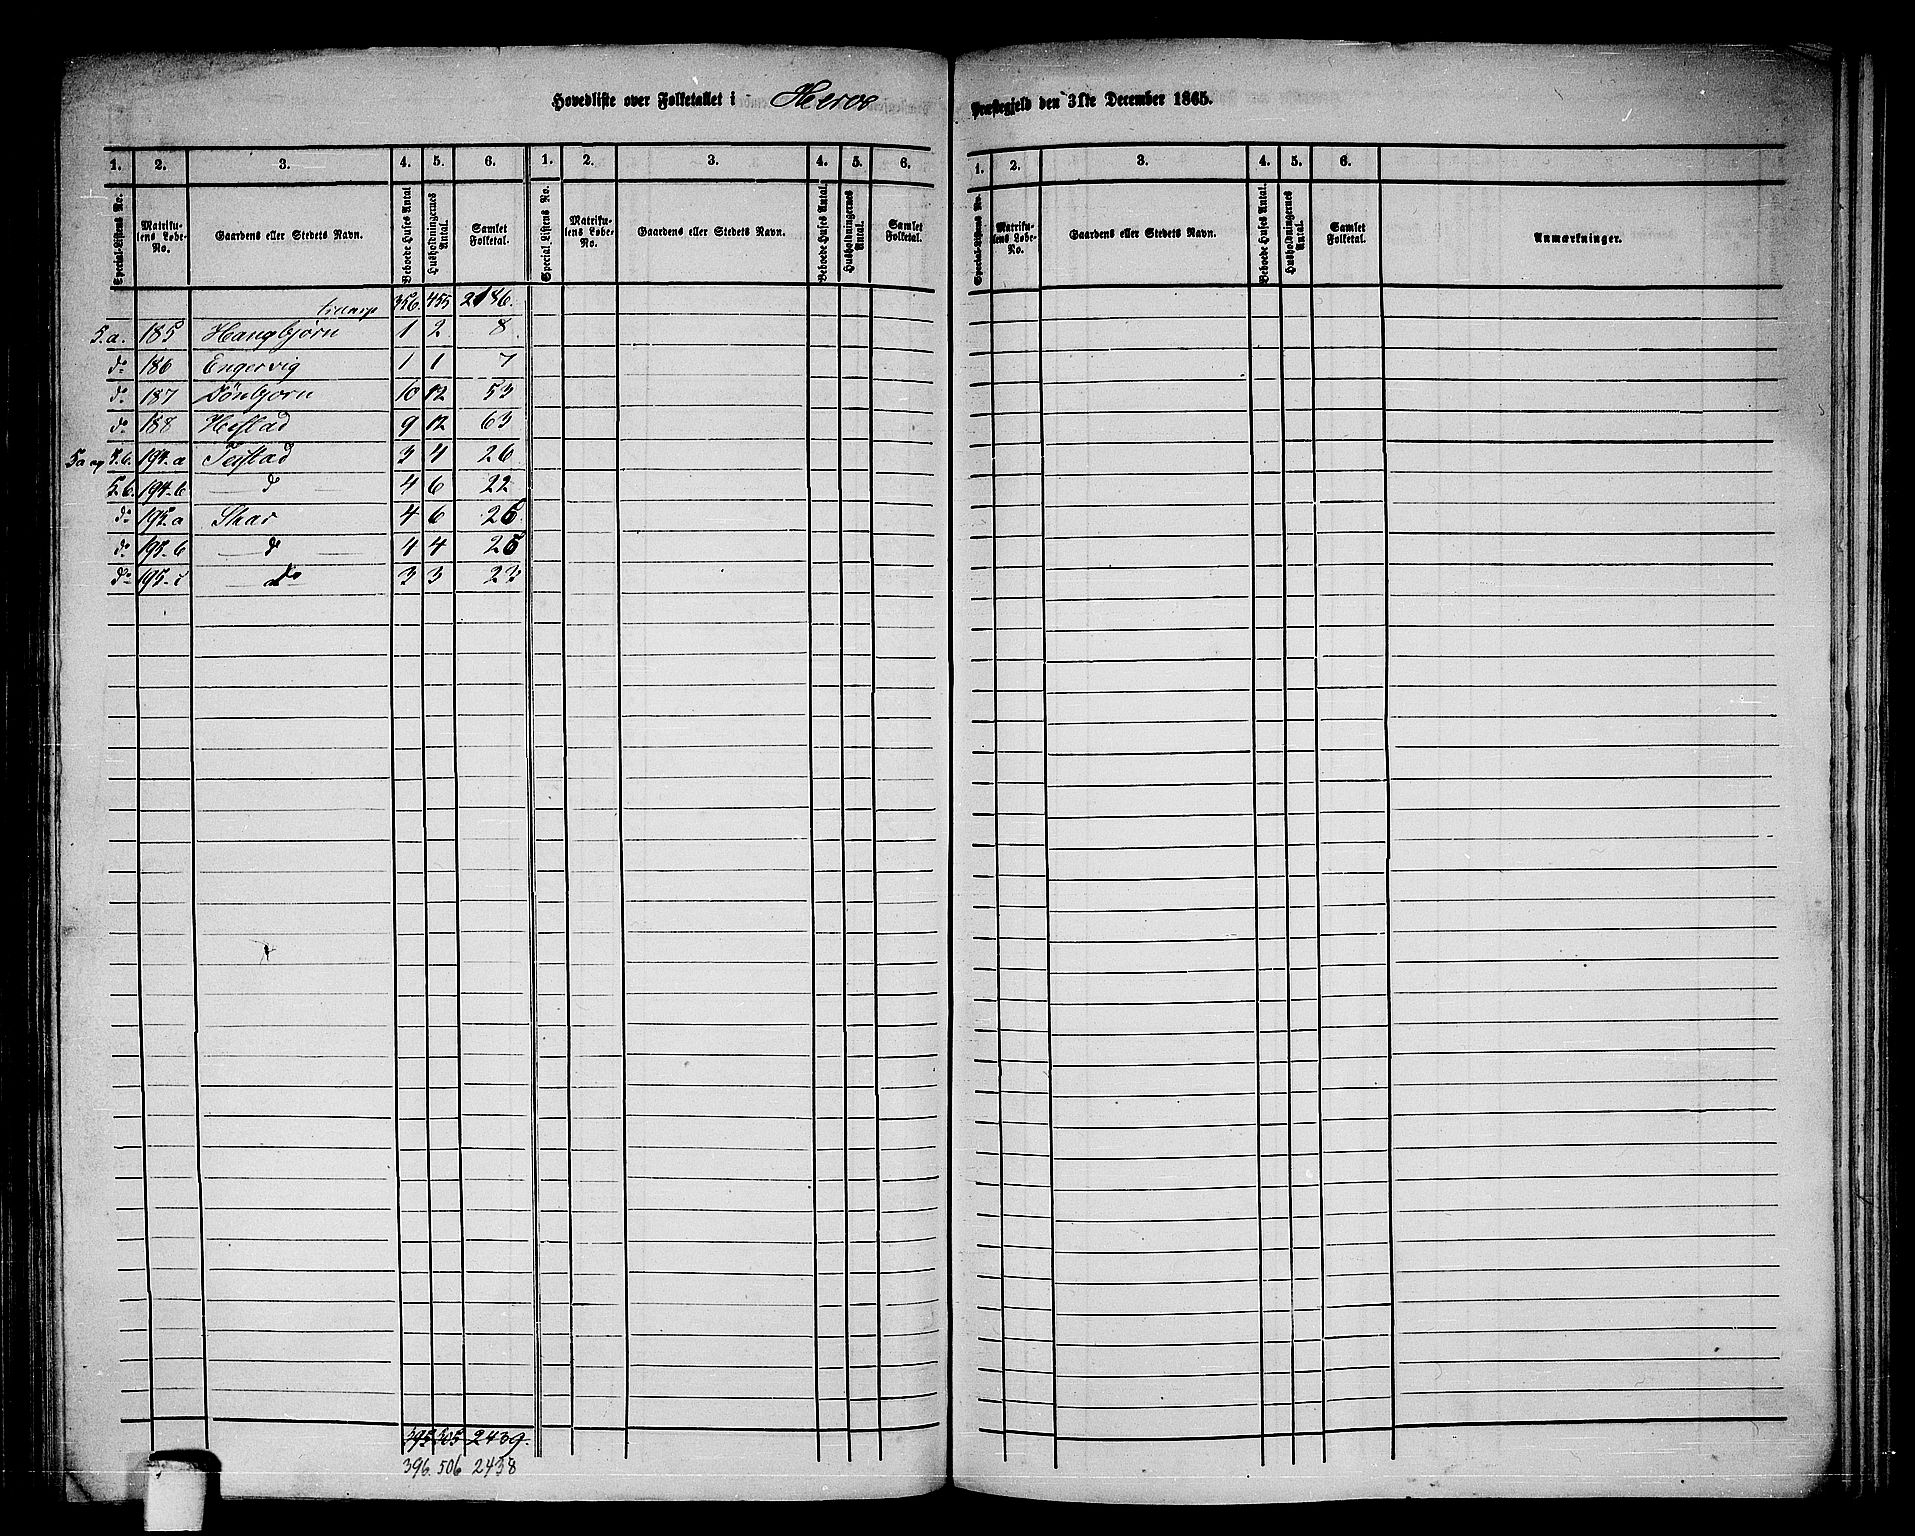 Hovedliste over Folketallet i Herøe Præstegjeld den 31te December 1865.
1. 2. 3. 4. 5. 6. 1. 2. 3. 4. 5. 6.
Special-Listens No. Matrikulens Løbe-No. Gaardens eller Stedets Navn. Beboede Huses Antal Husholdningernes Antal. Samlet Folketal. Special-Listens No. Matrikulens Løbe-No. Gaardens eller Stedets Navn. Beboede Huses Antal. Husholdningernes Antal. Samlet Folketal.
356. 455 2186.
5.a. 185 Hangbjørn 1 2 8
do 186 Engervig 1 1 7
do 187 Dønbjorn 10 12 53
do 188 Hestad 9 12 63
5a og 5.b. 194.a Teistad 3 4 26
5.b. 194.b — d — 4 6 22
do 195.a Skar 4 6 26
do 195.b — d — 4 4 26
do 195.c — do — 3 3 22
395 505 2439.
396. 506 2438
1. 2. 3. 4. 5. 6.
Special-Listens No. Matrikulens Løbe-No. Gaardens eller Stedets Navn. Beboede Huses Antal. Husholdningernes Antal. Samlet Folketal. Anmærkninger.